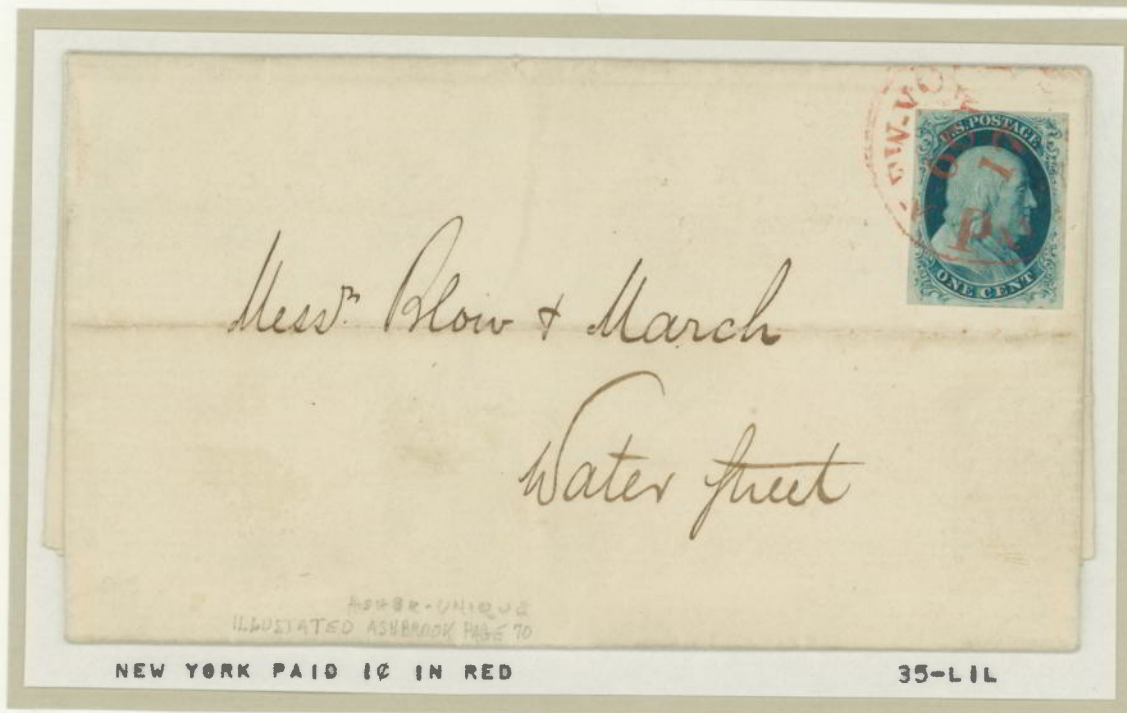 NEW-YO
U.S.POSTAGE
1
ONE CENT
Messrs Blow & March
Water Street
ASHBR-UNIQUE
ILLUSTATED ASHBROOK PAGE 70
NEW YORK PAID 1¢ IN RED
35-L1L